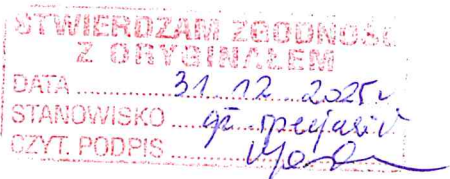 STWIERDZAM ZGODNOŚĆ
Z ORYGINAŁEM
DATA 31.12.2025r
STANOWISKO gł. specjalist
CZYT. PODPIS